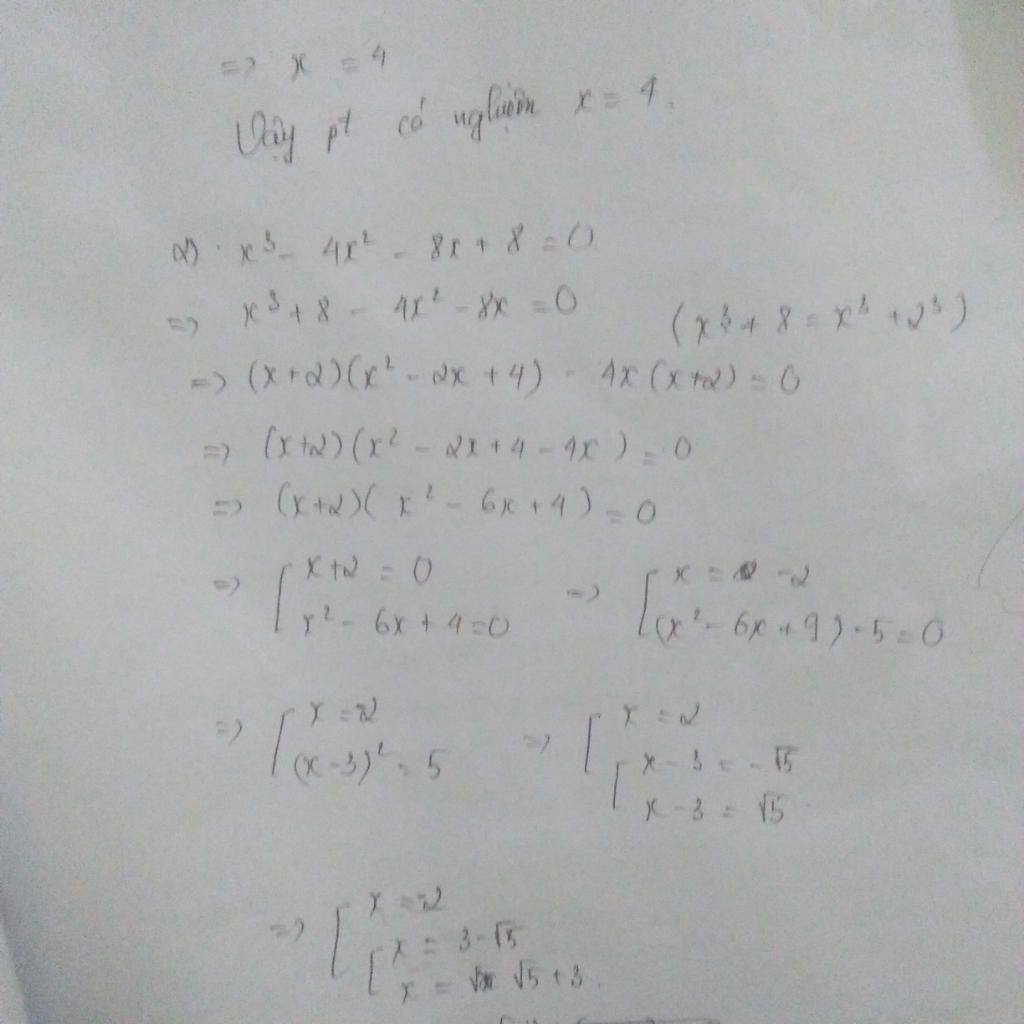 => x = 4
Vậy pt có nghiệm x = 4.
2) x³ - 4x² - 8x + 8 = 0
=> x³ + 8 - 4x² - 8x = 0 (x³ + 8 = x³ + 2³)
=> (x+2)(x² - 2x + 4) - 4x(x+2) = 0
=> (x+2)(x² - 2x + 4 - 4x) = 0
=> (x+2)(x² - 6x + 4) = 0
=> [ x+2 = 0 => [ x = -2
x² - 6x + 4 = 0 (x² - 6x + 9) - 5 = 0
=> [ x = -2 => [ x = 2
(x-3)² = 5 [ x - 3 = -√5
x - 3 = √5
=> [ x = -2
[ x = 3 - √5
x = √5 + 3.